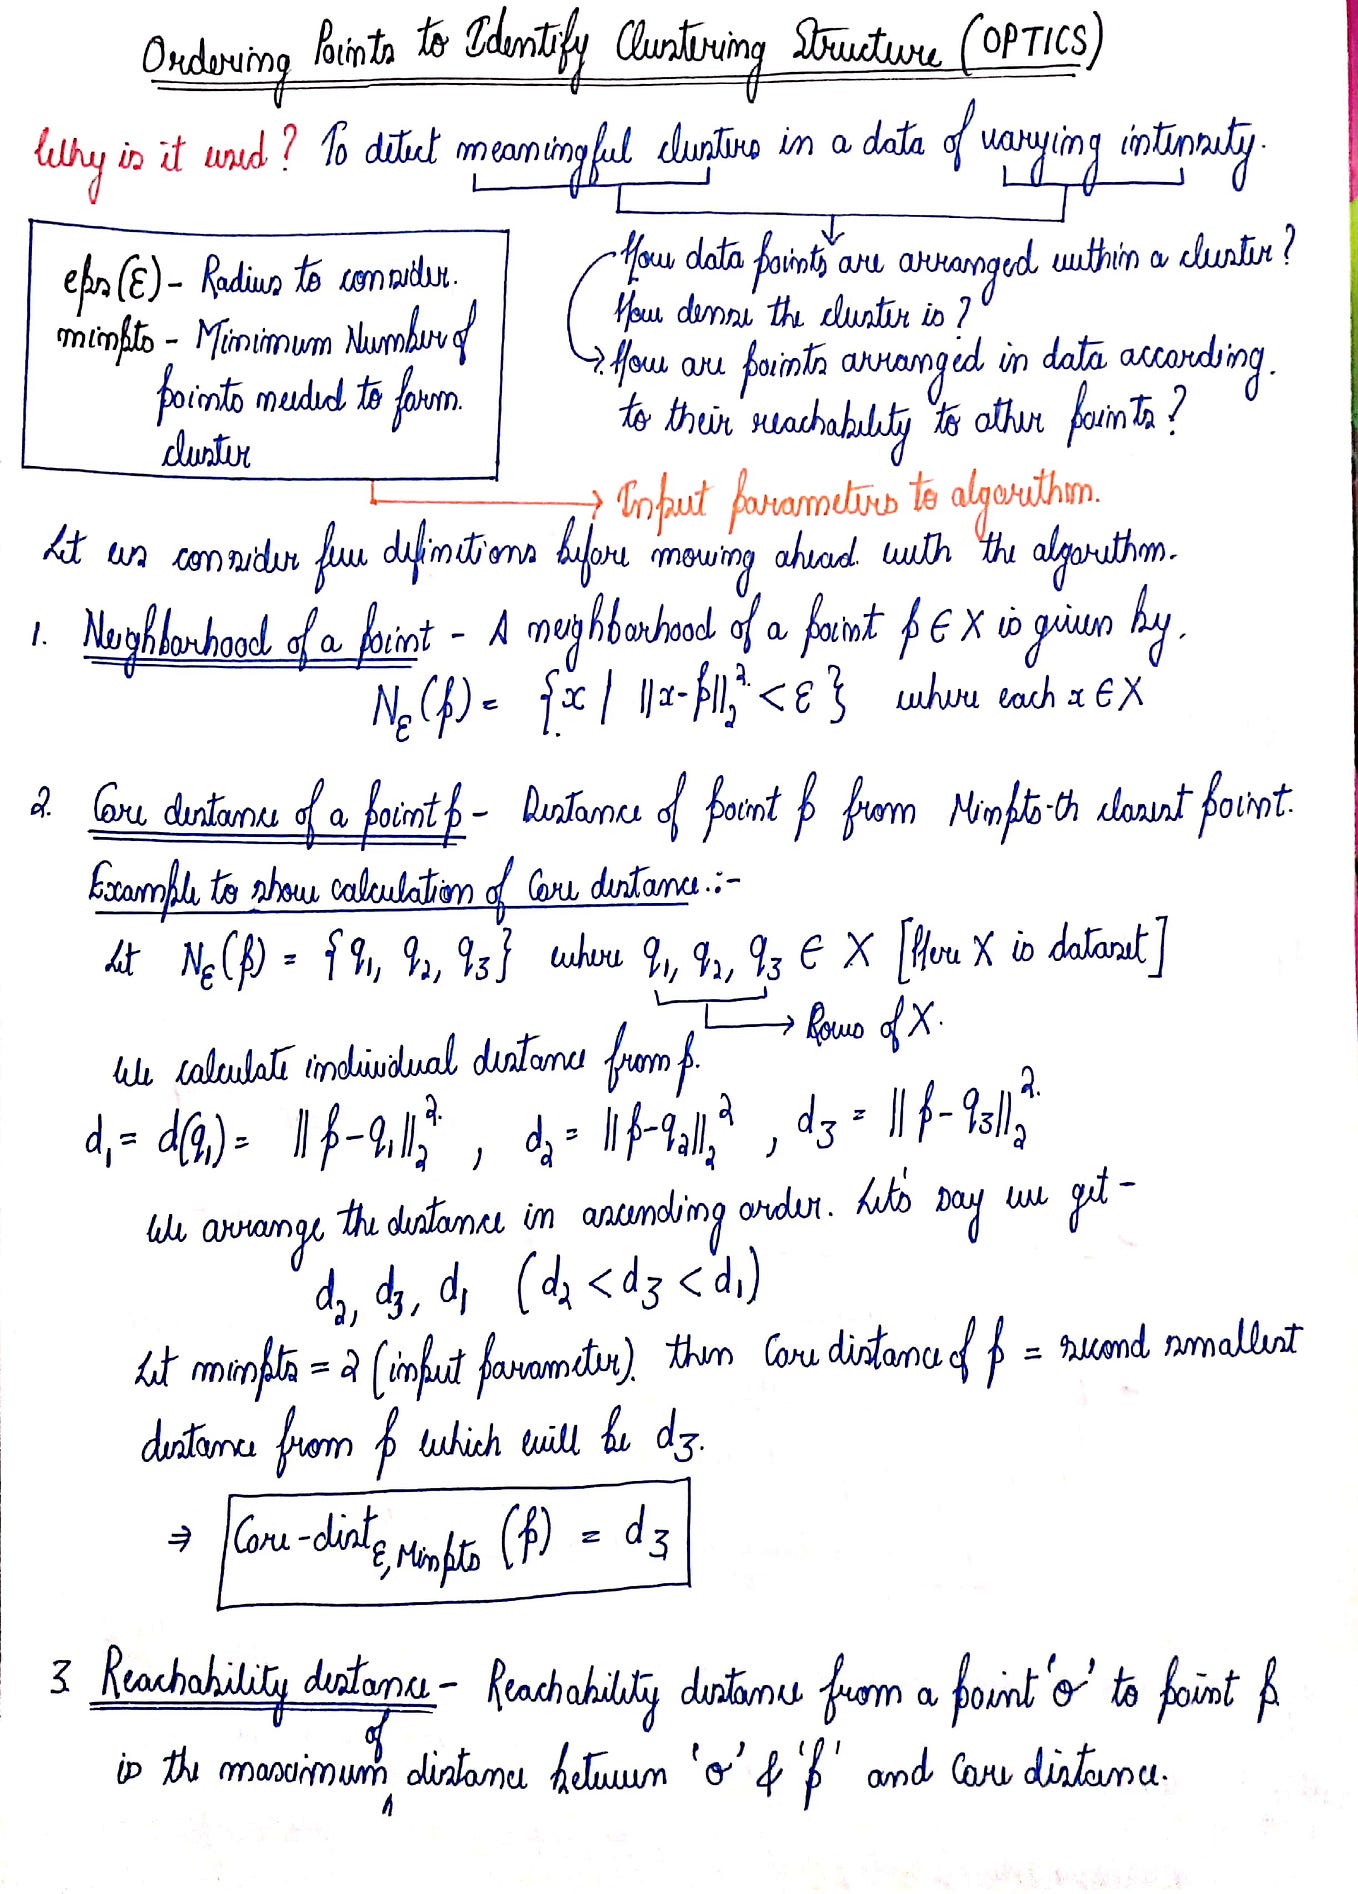 Ordering Points to Identify Clustering Structure (OPTICS)
Why is it used? To detect meaningful clusters in a data of varying intensity.
eps(ε) - Radius to consider.
minpts - Minimum Number of
points needed to form.
cluster
How data points are arranged within a cluster?
How dense the cluster is?
How are points arranged in data according.
to their reachability to other points?
→ Input parameters to algorithm.
Let us consider few definitions before moving ahead. with the algorithm.
1. Neighborhood of a point - A neighborhood of a point p ∈ X is given by.
N_ε(p) = {x | ||x-p||₂² < ε} where each x ∈ X
2. Core distance of a point p - Distance of point p from Minpts-th closest point.
Example to show calculation of Core distance.:-
Let N_ε(p) = {q₁, q₂, q₃} where q₁, q₂, q₃ ∈ X [Here X is dataset]
→ Rows of X.
We calculate individual distance from p.
d₁ = d(q₁) = ||p-q₁||₂², d₂ = ||p-q₂||₂², d₃ = ||p-q₃||₂²
We arrange the distance in ascending order. Let's say we get -
d₂, d₃, d₁ (d₂ < d₃ < d₁)
Let minpts = 2 (input parameter). then Core distance of p = second smallest
distance from p which will be d₃.
⇒ Core-dist_ε,Minpts (p) = d₃
3 Reachability distance - Reachability distance from a point 'o' to point p.
is the maximum of distance between 'o' & 'p' and Core distance.